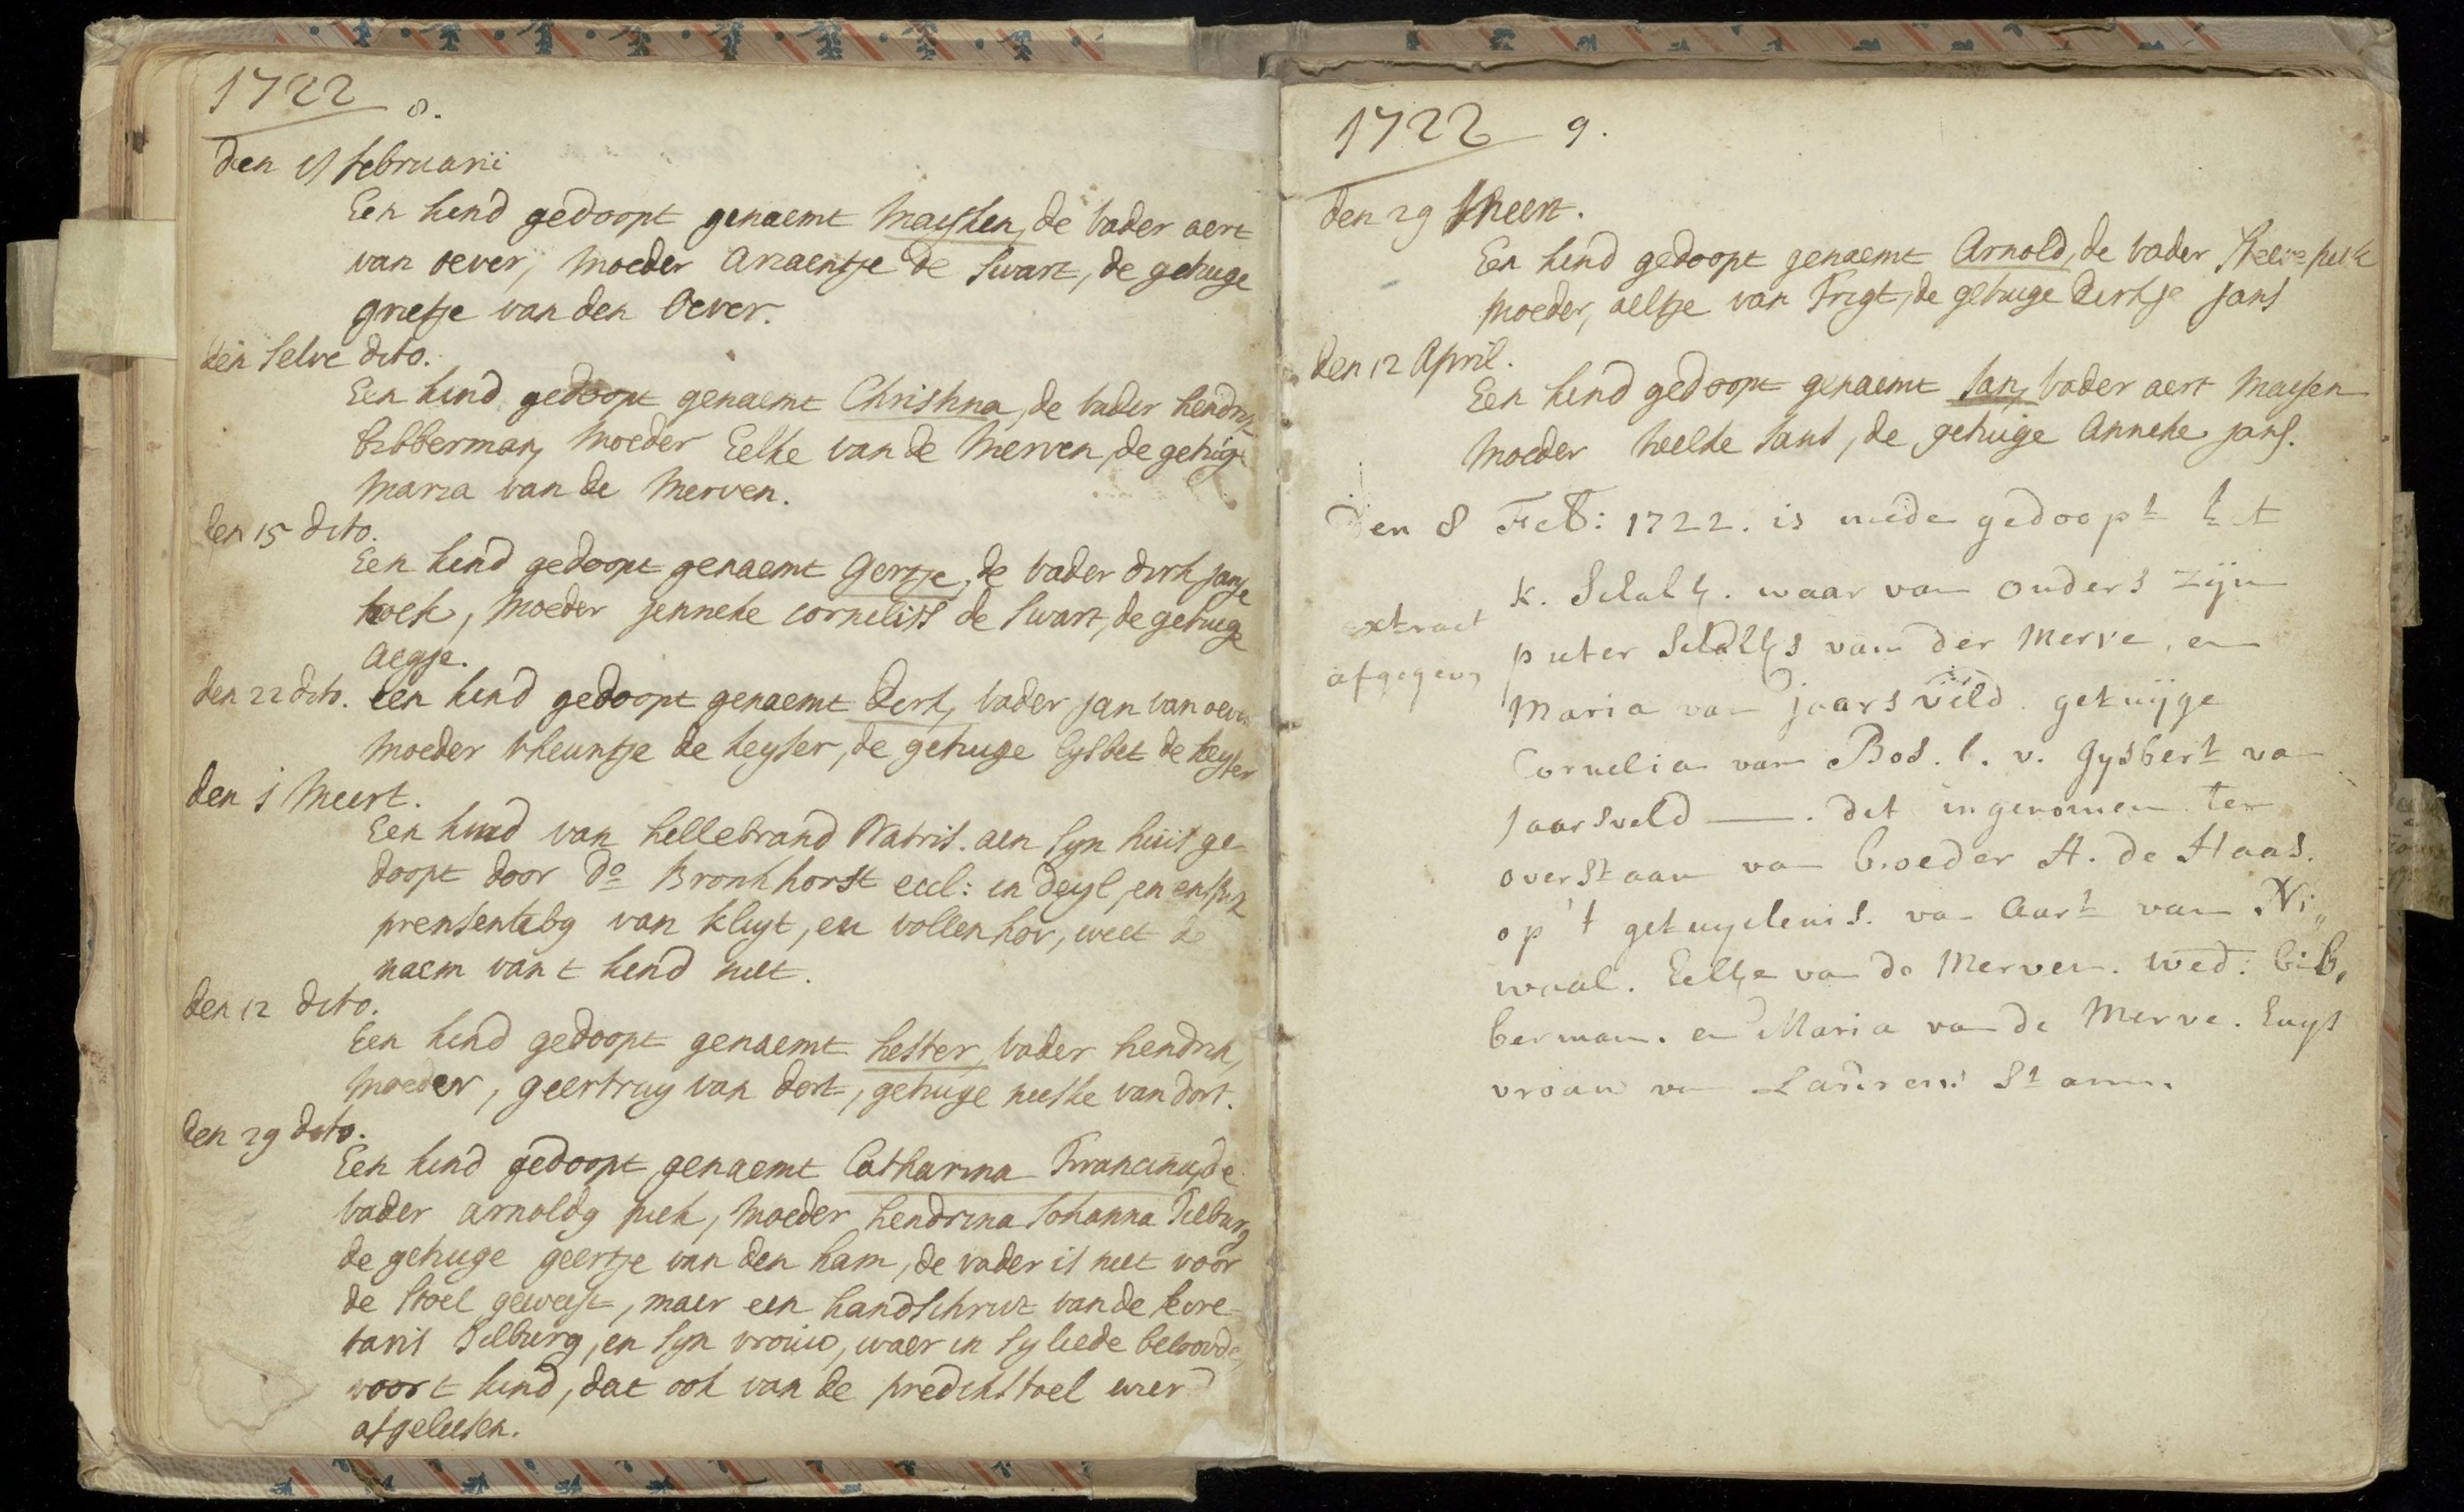 1722 8.
den 15 februarii
Een kind gedoopt genaemt Mayken, de vader aert
van oever, moeder Ariaentje de Swart, de getuige
grietje van den Oever.
den selve dito.
Een kind gedoopt genaemt Christina, de vader hendrik
bibberman, moeder Eelke van de Merven, de getuige
Maria van de Merven.
den 15 dito.
Een kind gedoopt genaemt Gertje, de vader dirk janse
hoek, moeder jenneke corneliss de Swart, de getuige
Aegje.
den 22 dito. Een kind gedoopt genaemt Dirk, vader jan van oever
moeder theuntje de keyser, de getuige Lysbet de keyser
den 1 Meert.
Een kind van hellebrand Natris. aen syn huis ge
doopt door Do Bronkhorst eccl: in deyl, en enspik
prensentibg van kluyt, en vollenhov, weet de
naem van t kind niet.
den 12 dito.
Een kind gedoopt genaemt hester, vader hendrik,
moeder, geertruy van dort, getuige neeske van dort.
den 29 dito.
Een kind gedoopt genaemt Catharina Francina, de
vader arnoldg piek, moeder hendrina Johanna Tilburg
de getuige geertje van den ham, de vader is niet voor
de stoel geweest, maer een handschrivt van de secre
taris Tilburg, en syn vrouw, waer in sy liede beloovde,
voor t kind, dat ook van de predikstoel wierd
afgeleesen.
1722 9.
den 29 Meert.
Een kind gedoopt genaemt Arnold, de vader piek
moeder, aeltje van Trigt, de getuige Dirkje jans
den 12 April.
Een kind gedoopt genaemt Jan, vader aert Maysen
moeder neelke Jans, de getuige Anneke jans.
Den 8 Feb: 1722. is mede gedoopt het
k. Schalk. waar van ouders zijn
extract
afgegeven
pieter Schalks van der Merve, en
Maria van jaarsveld. getuijge
Cornelia van Bos. h. v. Gysbert van
Jaarsveld ——. dit ingenomen ter
overstaan van broeder A. de Haas.
op 't getuygenis. van Aart van Ni„
waal. Eelke van de Merven. wed: bib,
berman. en Maria van de Merve. huys
vrouw van Laurens Stam.